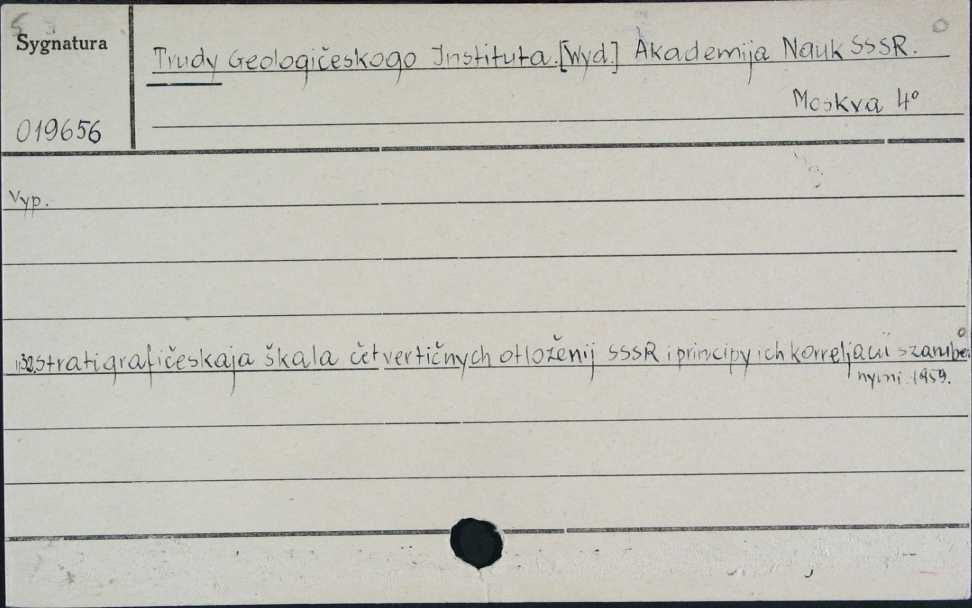 Sygnatura
Trudy Geologičeskogo Instituta. [Wyd.] Akademija Nauk SSSR.
Moskva 4°
019656
Vyp.
32, Stratigrafičeskaja škala četvertičnych otloženij SSSR i principy ich korreljacii s zarube
nymi. 1959.